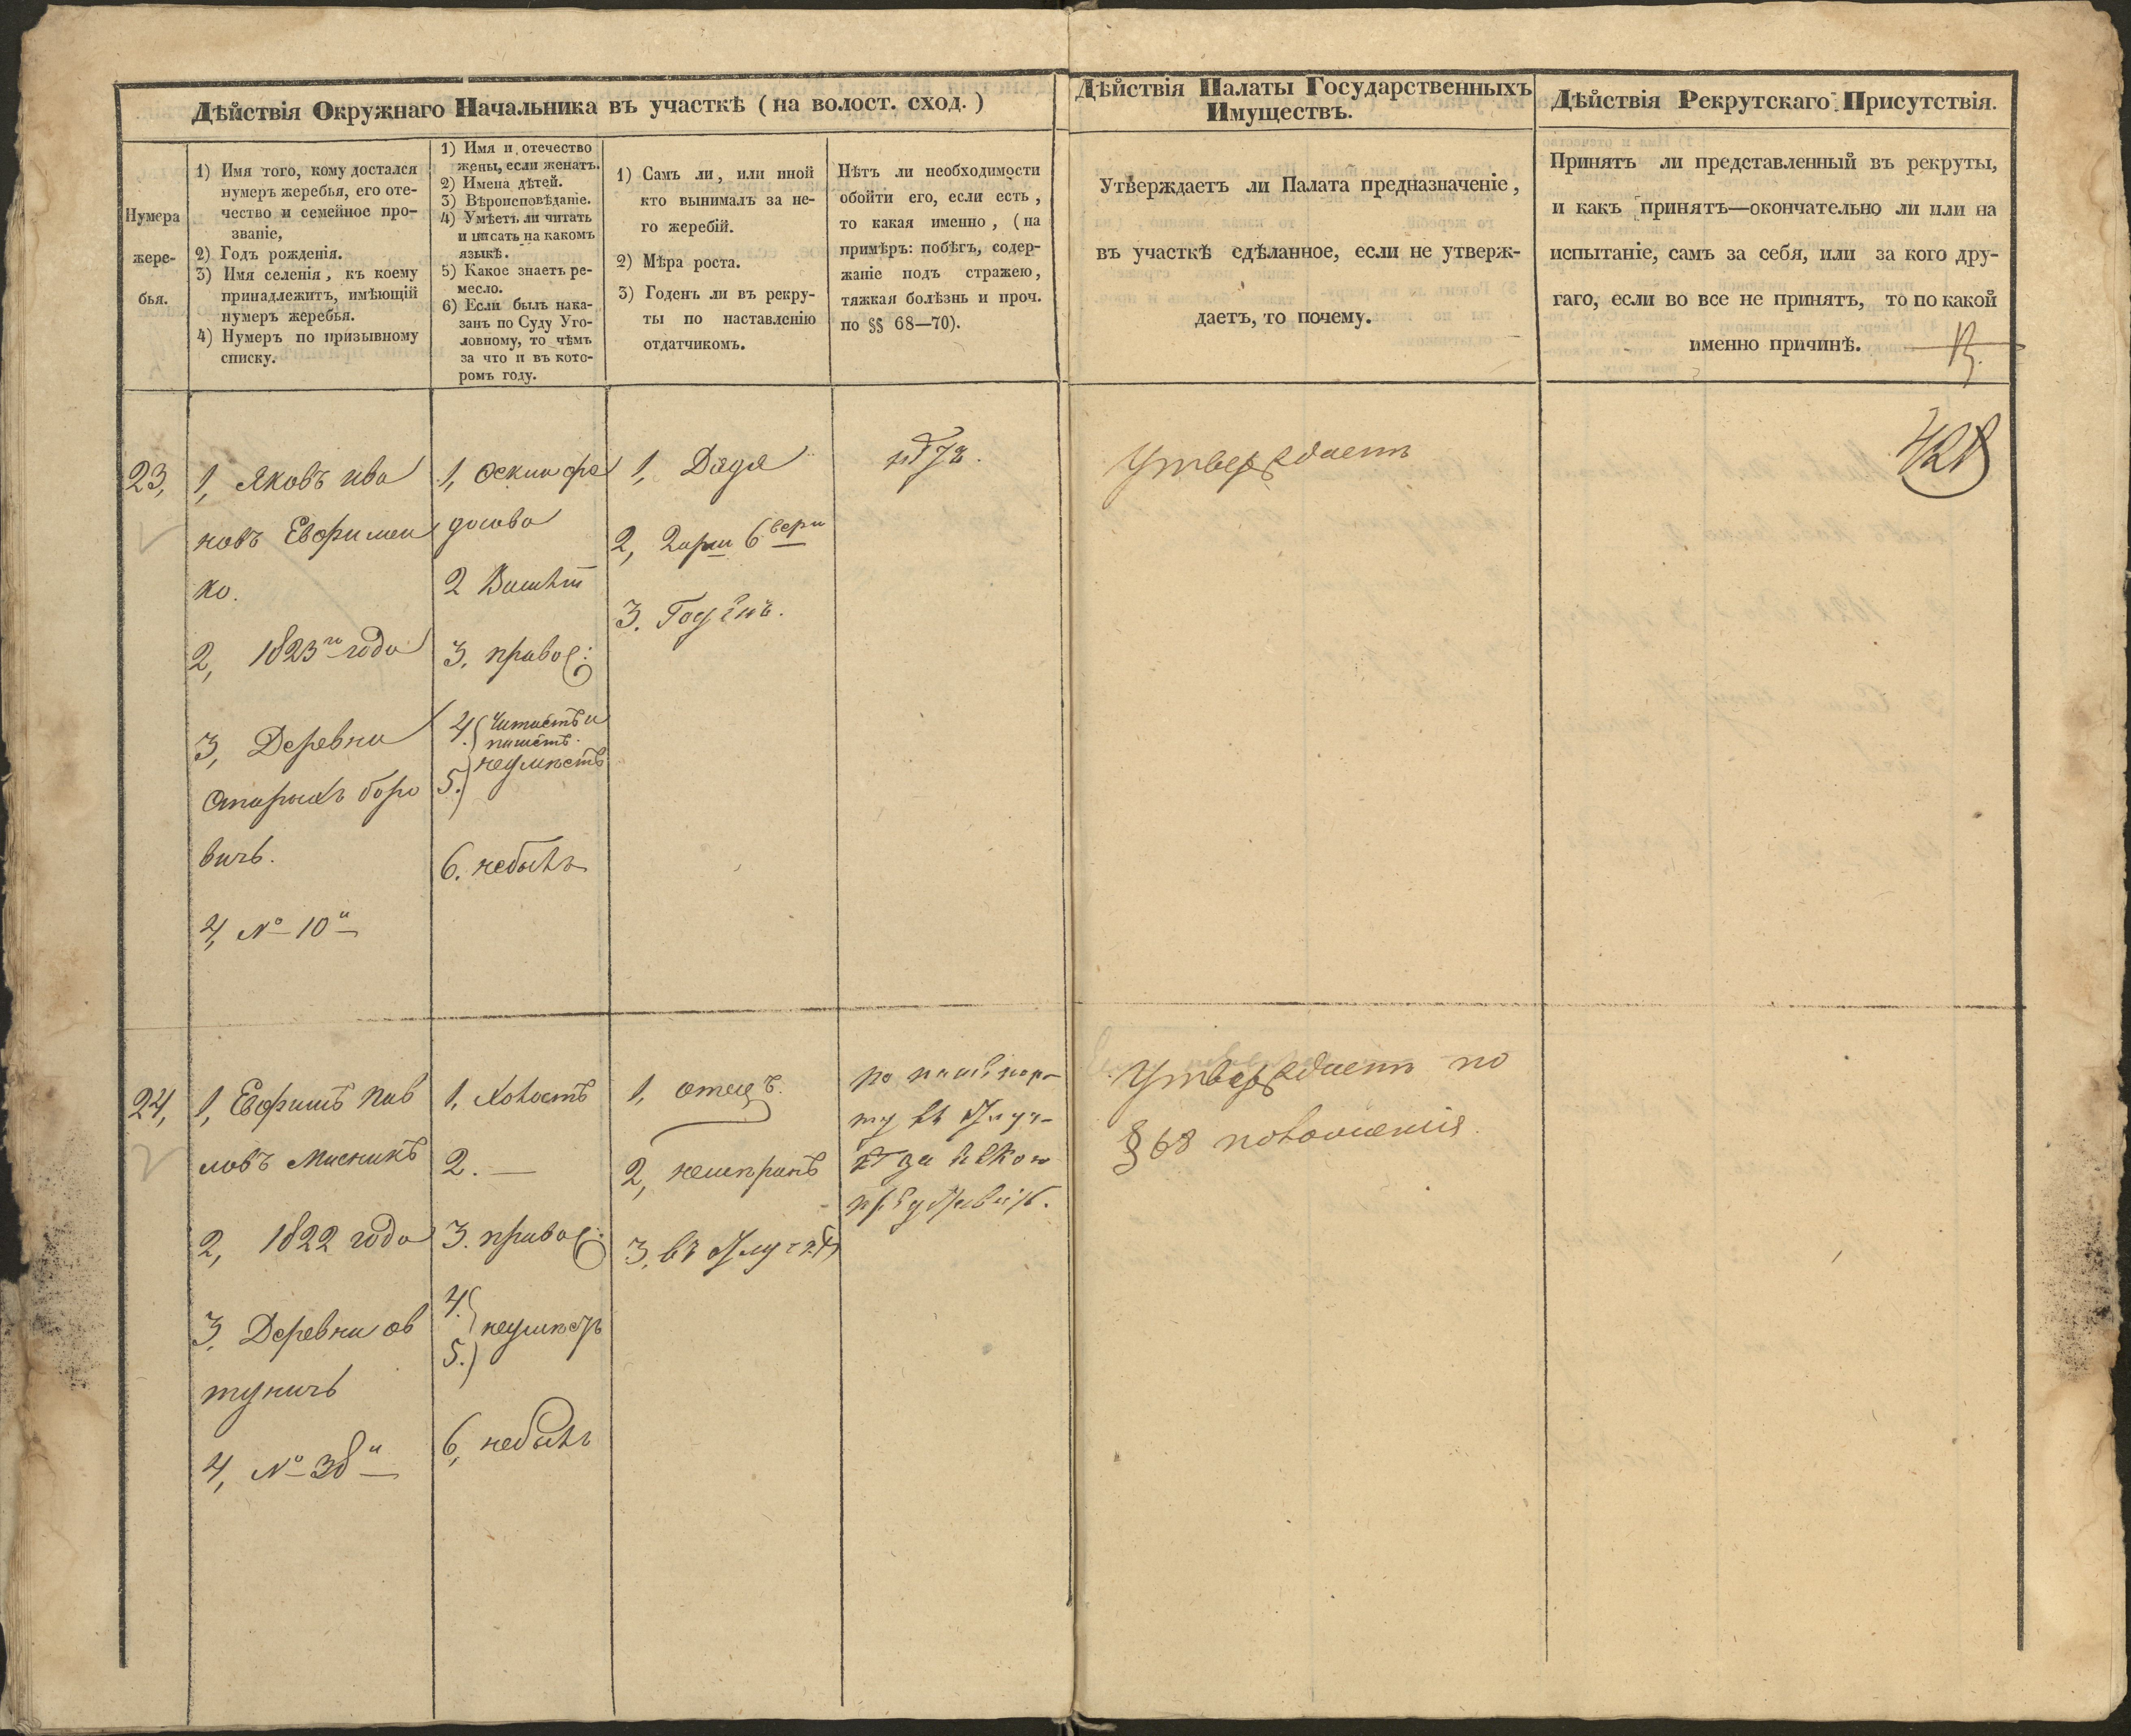 Дѣйствія Окружнаго Начальника въ участкѣ (на волост. сход.)
Дѣйствія Палаты Государственныхъ
Имуществъ.
Дѣйствія Рекрутскаго Присутствія.
Нумера
жере-
бья.
1) Имя того, кому достался
нумеръ жеребья, его оте-
чество и семейное про-
званіе,
2) Годъ рожденія.
3) Имя селенія, къ коему
принадлежитъ, имѣющій
нумеръ жеребья.
4) Нумеръ по призывному
списку.
1) Имя и отечество
жены, если женатъ.
2) Имена дѣтей.
3) Вѣроисповѣданіе.
4) Умѣетъ ли читать
и писать на какомъ
языкѣ.
5) Какое знаетъ ре-
месло.
6) Если былъ нака-
занъ по Суду Уго-
ловному, то чѣмъ
за что и въ кото-
ромъ году.
1) Самъ ли, или иной
кто вынималъ за не-
го жеребій.
2) Мѣра роста.
3) Годенъ ли въ рекру-
ты по наставленію
отдатчикомъ.
Нѣтъ ли необходимости
обойти его, если есть,
то какая именно, (на
примѣръ: побѣгъ, содер-
жаніе подъ стражею,
тяжкая болѣзнь и проч.
по §§ 68—70).
Утверждаетъ ли Палата предназначеніе,
въ участкѣ сдѣланное, если не утверж-
даетъ, то почему.
Принятъ ли представленный въ рекруты,
и какъ принятъ—окончательно ли или на
испытаніе, самъ за себя, или за кого дру-
гаго, если во все не принятъ, то по какой
именно причинѣ.
23,
1, Яковъ ива
новъ Евфимен
ко.
2, 1823го года
3, Деревни
Старыхъ боро
вичъ.
4, № 10й
1,
досова
2
3, правос:
4. Читаетъ и
пишетъ.
5. неумѣетъ
6. небылъ
1, Дядя
2, 2 арш 6 верш
3. Годенъ.
нѣтъ.
Утверждаетъ
24,
1, Евфимъ пав
ловъ Мисникъ
2, 1822 года
3, Деревни ов
туничь
4, № 38й
1, Холостъ
2. —
3. правос:
4. неумѣетъ
5.
6, небылъ
1, отецъ.
2,
3, въ отлучкѣ
по пашпор-
ту въ отлуч-
кѣ
Утверждаетъ по
§ 68 положенія.